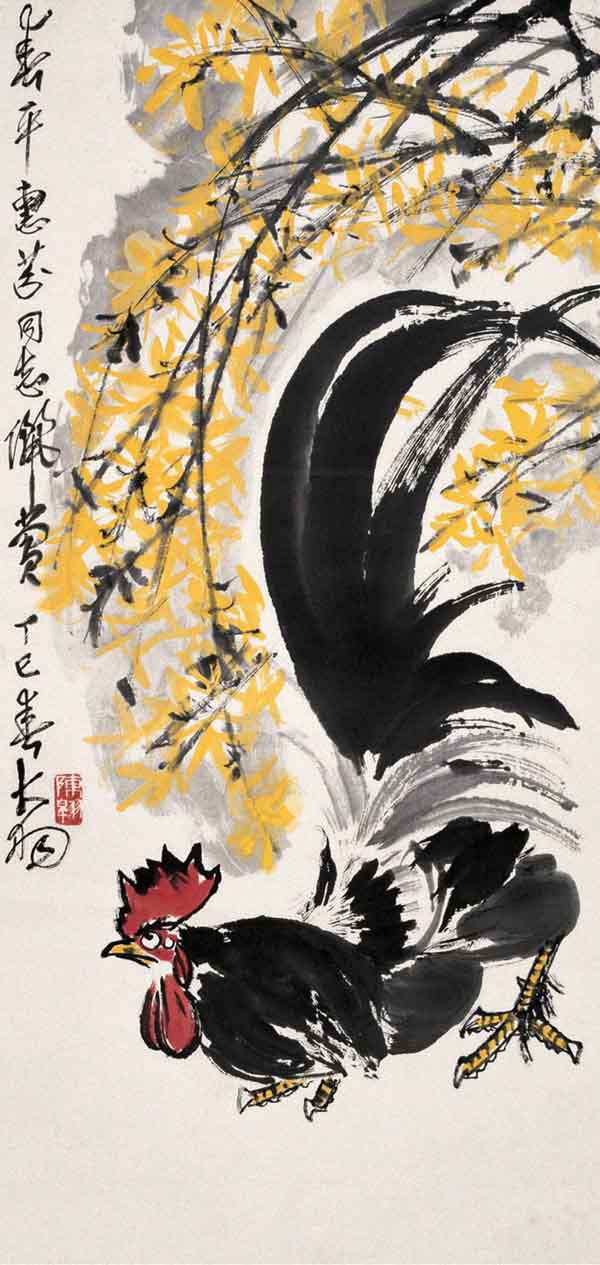 春平惠芬同志儷賞丁巳春大羽
陳翱